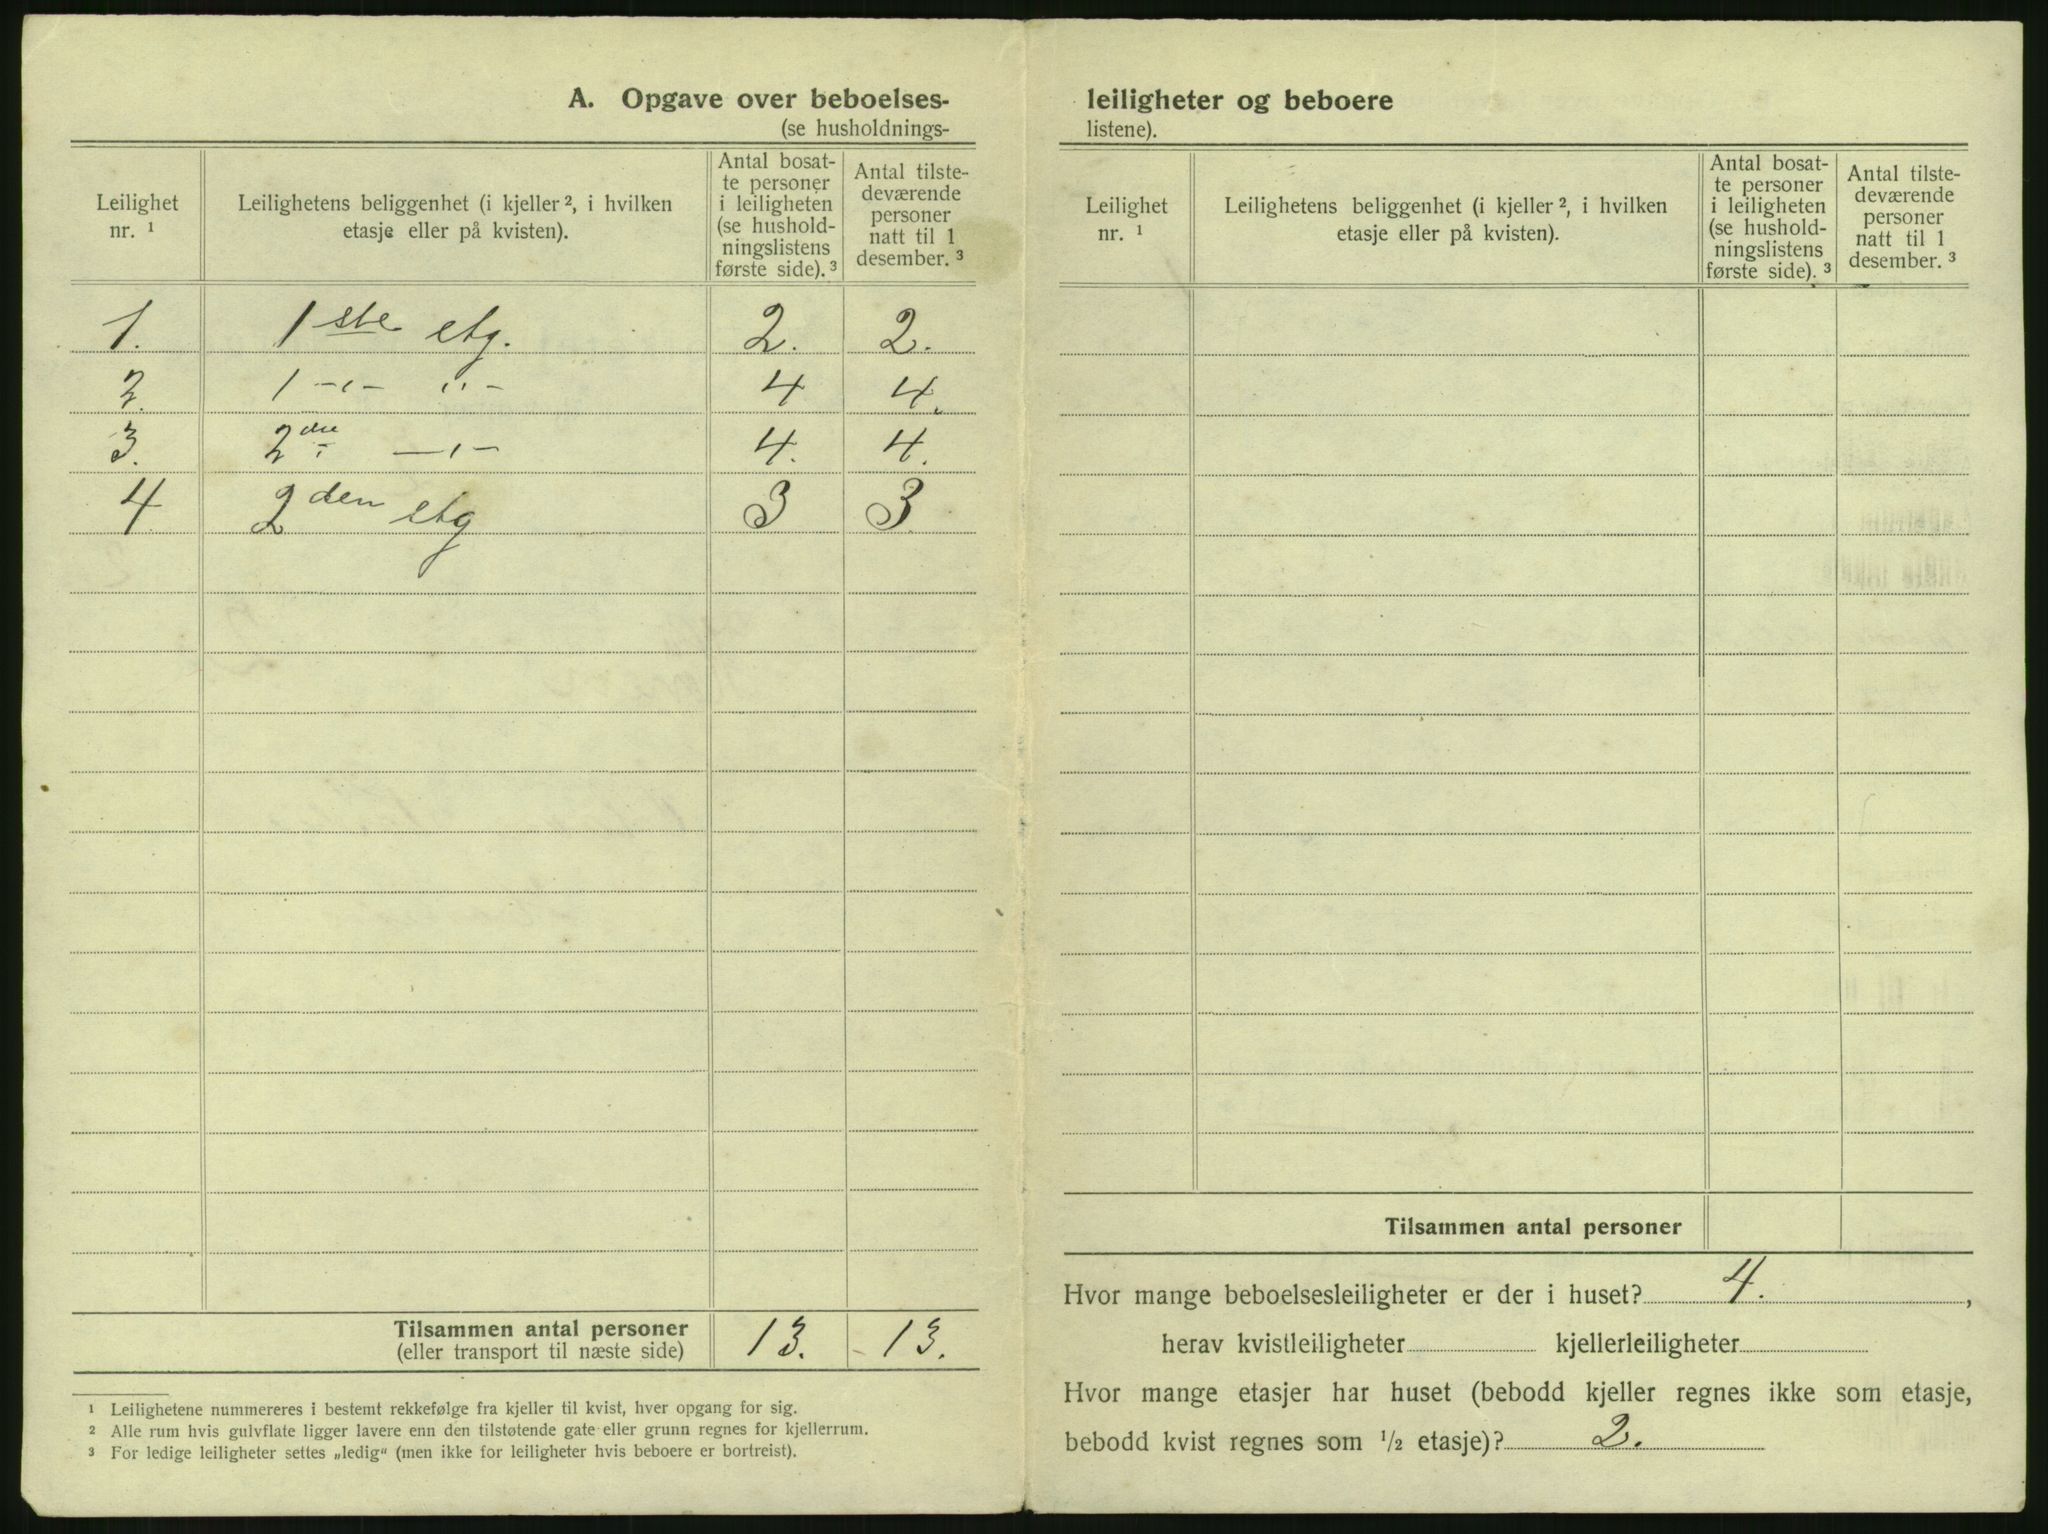 A. Opgave over beboelses-
(se husholdnings-
Leilighet
nr. 1
Leilighetens beliggenhet (i kjeller 2, i hvilken
etasje eller på kvisten).
Antal bosat-
te personer
i leiligheten
(se hushold-
ningslistens
første side). 3
Antal tilste-
deværende
personer
natt til 1
desember. 3
1. 1ste etg. 2. 2.
2. 1 -"- "- 4 4.
3. 2dre -"- 4. 4.
4 2den etg 3 3.
Tilsammen antal personer 13. 13.
(eller transport til næste side)
1 Leilighetene nummereres i bestemt rekkefølge fra kjeller til kvist, hver opgang for sig.
2 Alle rum hvis gulvflate ligger lavere enn den tilstøtende gate eller grunn regnes for kjellerrum.
3 For ledige leiligheter settes „ledig“ (men ikke for leiligheter hvis beboere er bortreist).
leiligheter og beboere
listene).
Leilighet
nr. 1
Leilighetens beliggenhet (i kjeller 2, i hvilken
etasje eller på kvisten).
Antal bosat-
te personer
i leiligheten
(se hushold-
ningslistens
første side). 3
Antal tilste-
deværende
personer
natt til 1
desember. 3
Tilsammen antal personer
Hvor mange beboelsesleiligheter er der i huset? 4.,
herav kvistleiligheter kjellerleiligheter
Hvor mange etasjer har huset (bebodd kjeller regnes ikke som etasje,
bebodd kvist regnes som 1/2 etasje)? 2.